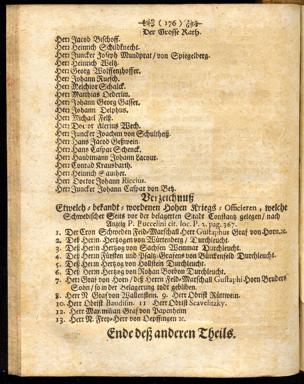 ( 176 )
Der Grosse Rath.
Herr Jacob Bischoff.
Herr Heinrich Schildknecht.
Herr Juncker Joseph Mundprat / von Spiegelberg.
Herr Heinrich Weltz.
Herr Georg Wolffenzhoffer.
Herr Johann Ruesch.
Herr Melchior Schalck.
Herr Matthias Oederlin.
Herr Johann Georg Gasser.
Herr Johann Delphus.
Herr Michael Felß.
Herr Doctor Alerius Wech.
Herr Juncker Joachim von Schultheiß.
Herr Hans Jacob Geßwein.
Herr Hans Caspar Schenck.
Herr Haubtmann Johann Lacour.
Herr Conrad Krausbarth.
Herr Heinrich Sauther.
Herr Doctor Johann Riccius.
Herr Juncker Johann Caspar von Betz.
Verzeichnuß
Etwelch-bekandt-wordenen Hohen Kriegs-Officieren, welche
Schwedischer Seits vor der belagerten Stadt Constantz gelegen / nach
Anzeig P. Puccelini cit. loc. P. 2. pag. 367.
1. Der Cron Schweden Feld-Marschall Herr Gustaphus Graf von Horn.ꝛc.
2. Deß Herrn Hertzogen von Würtenberg / Durchleucht.
3. Deß Herrn Hertzog von Sachsen Weinmar Durchleucht.
4. Deß Herrn Fürsten und Pfaltz-Grafens von Bürckenfeld Durchleucht.
5. Deß Herrn Hertzog von Hollstein Durchleucht.
6. Deß Herrn Hertzog von Rohan Borbon Durchleucht.
7. Herr Graf von Horn / deß Herrn Feld-Marschall Gustaphi-Horn Bruders
Sohn / so in der Belagerung todt gebliben.
8. Herr N Graf von Wallenstein. 9. Herr Obrist Rüttwein.
10. Herr Obrist Bauditin. 11 Herr Obrist Scavelitzky.
12. Herr Maximilian Graf von Papenheim
13. Herr N. Frey-Herr von Oepffingen ꝛc.
Ende deß anderen Theils.